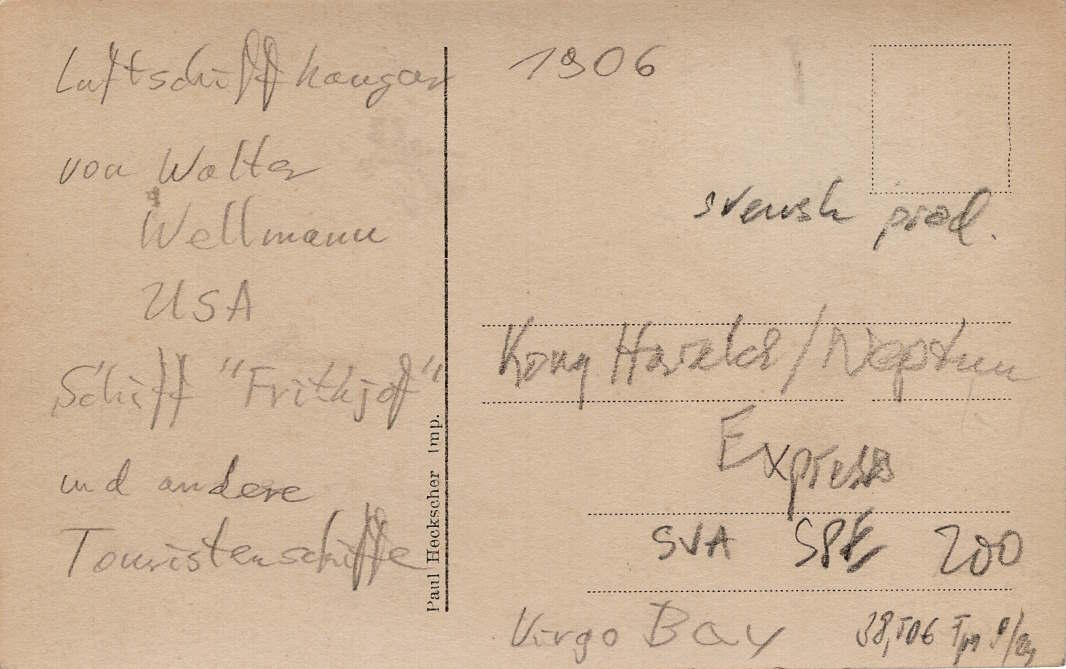 Luftschiffhangar
von Walter
Wellmann
USA
Schiff "Frithjof"
und andere
Touristenschiffe
Paul Heckscher Imp.
1906
svensk prod.
Kong Harald/Neptun
Express
SVA SPE 200
Virgo Bay